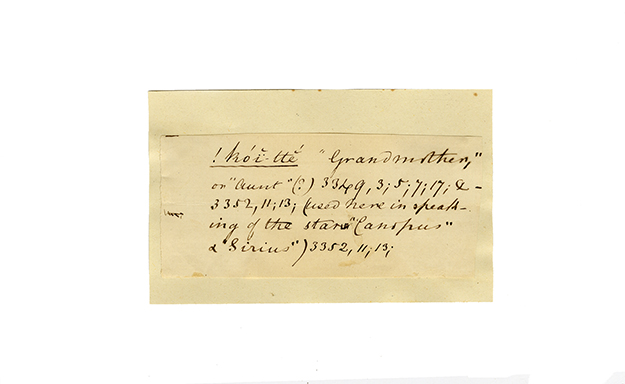 ! kóï-tté "Grandmother,"
or "Aunt" (?) 3349, 3; 5; 7; 17, & -
3352, 11; 13; (used here in speak-
ing of the stars "Canopus"
& "Sirius") 3352, 11; 13;